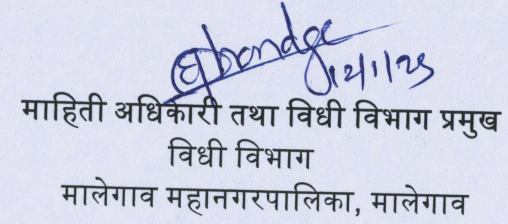 12/1/25
माहिती अधिकारी तथा विधी विभाग प्रमुख
विधी विभाग
मालेगाव महानगरपालिका, मालेगाव